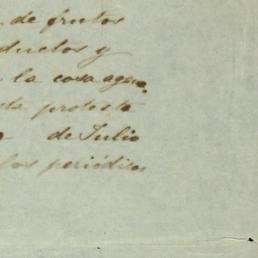 de frutos
ductos y
la cosa agena
protesta
de Julio
los periódicos